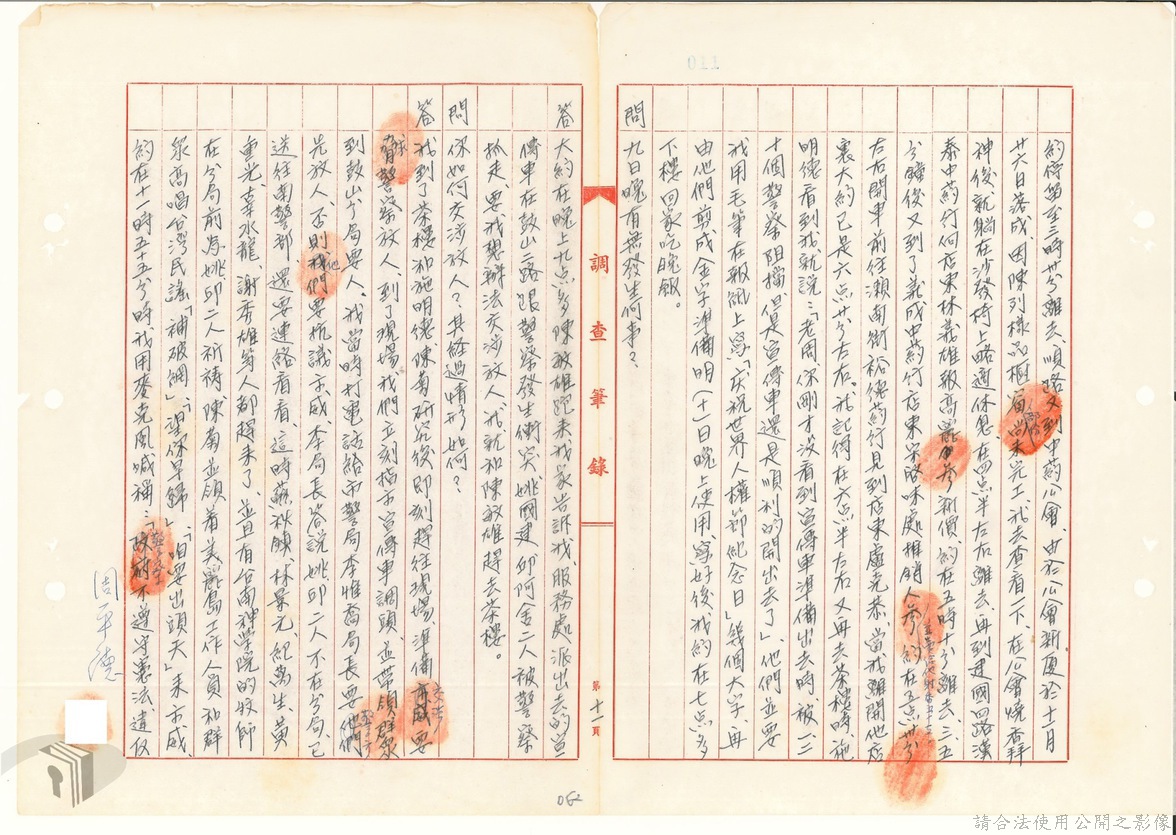 011
約停留至三時卅分離去、順路又到中葯公會、由於公會新廈於十一月
廿六日落成因陳列樣品櫃尚未完工、我去查看一下、在公會燒香拜
神後就躺在沙發椅上略適休息在四點半左右離去再到建國四路漢
泰中葯行何店東林義雄報高麗參新價、約在五時十分離去、三、五
分鐘後又到了義成中葯行店東宋欽味處推銷人參、約在五点卅分
左右開車前往瀨南街裕德葯行見到店東盧克恭、當我離開他店
裏大約已是六点卅分左右。我記得在六点半左右又再去茶樓時、施
明德看到我就說：「老周你剛才沒看到宣傳車準備出去時、被一二
十個警察阻擋、但是宣傳車還是順利的開出去了」、他們並要
我用毛筆在報紙上寫「庆祝世界人權節紀念日」幾個大字、再
由他們剪成金字準備明(十)日晚上使用、寫好後我約在七点多
下樓回家吃晚飯。
問 九日晚有無發生何事？
調查筆錄
第十一頁
答 大約在晚上九点多陳敏雄跑來我家告訴我、服務處派出去的宣
傳車在鼓山二路跟警察發生衝突、姚國建、邱阿舍二人被警察
抓走、要我想辦法交涉放人、我就和陳敏雄趕去茶樓。
問 你如何交涉放人？其經過情形如何？
答 我到了茶樓和施明德、陳菊研究後即刻趕往現場、準備交涉要
求警察放人、到了現場我們立刻指示宣傳車調頭、並帶領群眾
到鼓山分局要人。我當時打電話給市警局李惟喬局長要他們
先放人、否則我們要抗議示威、李局長答說姚邱二人不在分局、已
送往南警部、還要連絡看看、這時蘇秋鎮、林景元、紀萬生、黃
重光、辜水龍、謝秀雄等人都趕來了、並且有台南神學院的牧師
在分局前為姚邱二人祈禱、陳菊並領着美麗島工作人員和群
眾高唱台灣民謠「補破網」、「望你早歸」、「咱要出頭天」來示威、
約在十一時五十五分時我用麥克風喊稱：「政府不遵守憲法、違反
周平德
062
請合法使用公開之影像